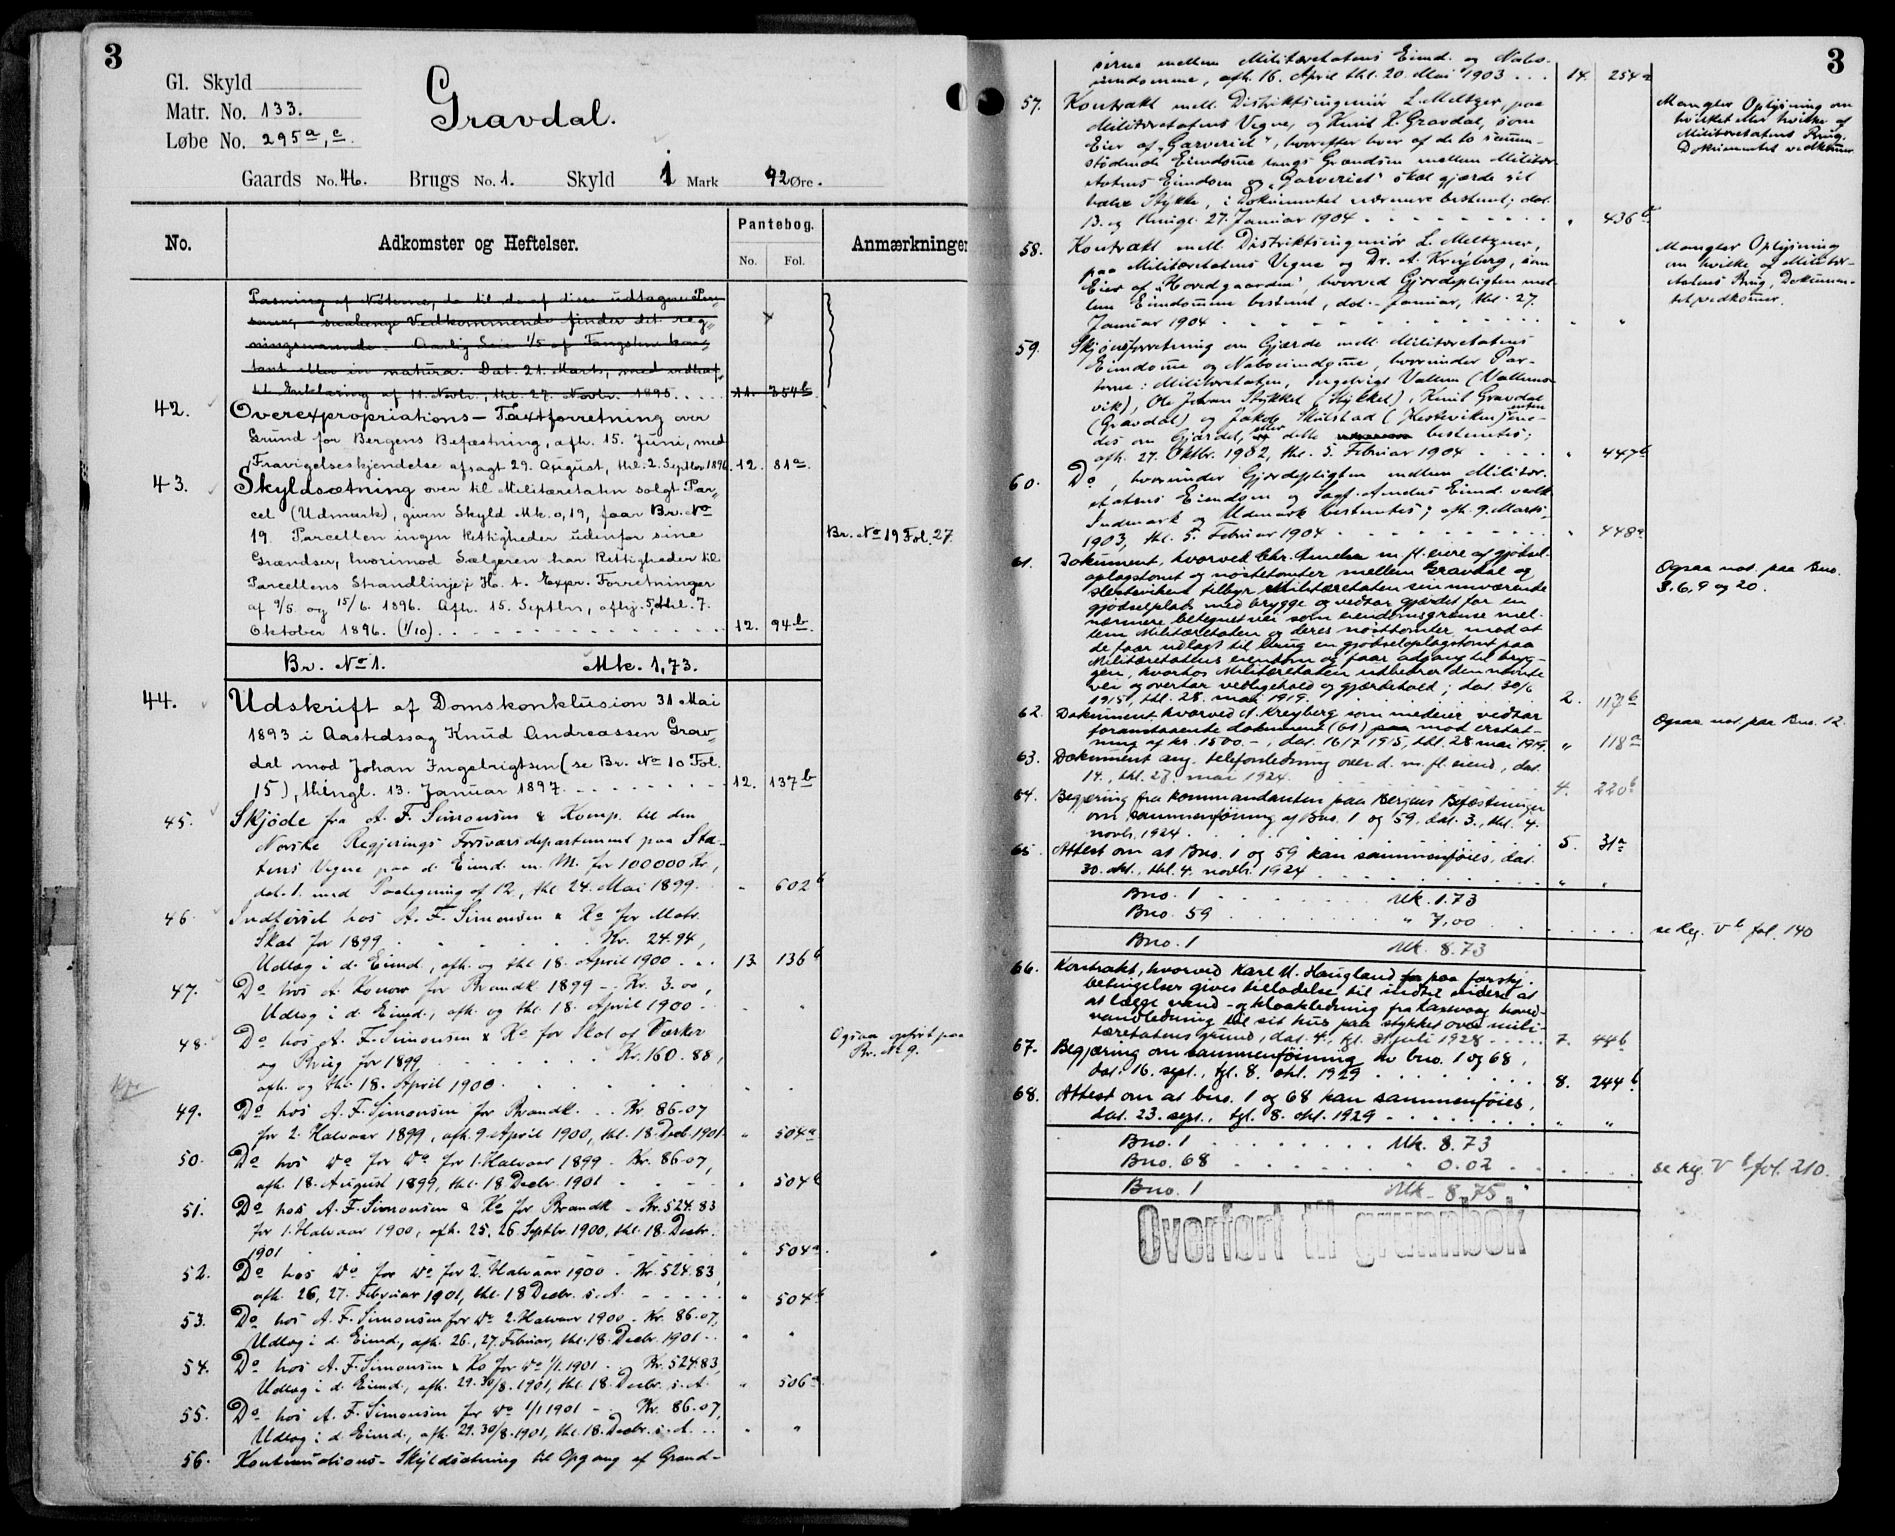 3
Gl. Skyld
Matr. No. 133.
Løbe No. 295 a, c
Gravdal.
Gaards No. 46. Brugs No. 1. Skyld 1 Mark 92 Øre.
No. Adkomster og Heftelser. Pantebog. Anmærkninger
No. Fol.
Pasning af Nøterne, da til de af disse udtagne Per-
soner, saalænge Vedkommende finder det reg-
ningsvarende. Aarlig Leie 1/5 af Fangsten kon-
tant eller in natura. Dat. 21. Marts, med vedhæf-
tet Erklæring af 11. Novbr., thl. 27. Novbr. 1895. . . . 11. 354b
42. Overexpropriations-Taxtforretning over
Grund for Bergens Befæstning, afh. 15. Juni, med
Fravigelseskjendelse afsagt 29. August, thl. 2. Septbr 1896. 12. 81a.
43. Skyldsætning over til Militæretaten solgt Par-
cel (Udmark), given Skyld Mk. 0,19, faar Br. No
19. Parcellen ingen Rettigheder udenfor sine Br. No 19 Fol. 27
Grændser, hvorimod Sælgeren har Rettigheder til
Parcellens Strandlinje; H. t. Expr. Forretninger
af 9/5. og 15/6. 1896. Afh. 15. Septbr, afhj. 5, thl. 7.
Oktober 1896. (1/10). . . . 12. 94b.
Br. No 1. Mk. 1,73.
44. Udskrift af Domskonklusion 31 Mai
1893 i Aastedssag Knud Andreassen Grav-
dal mod Johan Ingebrigtsen (se Br. No 10 Fol.
15), thingl. 13. Januar 1897. . . . 12. 137b
45. Skjøde fra A. F. Simonsen & Komp. til den
Norske Regjerings Forsvarsdepartement paa Sta-
tens Vegne paa d. Eiend. m. M. for 100000 Kr,
dat. 1. med Paategning af 12., thl 24. Mai 1899. - 602b
46. Indførsel hos A. F. Simonsen & Ko for Matr.
Skat for 1899 . . . Kr. 24.94,
Udlæg i d. Eiend., afh. og thl 18. April 1900 . . . 13. 136b
47. Do hos A. Konow for Brandk 1899 - Kr. 3.00,
Udlæg i d. Eiend., afh. og thl. 18. April 1900 - - "
48. Do hos A. F. Simonsen & Ko for Skat af Værker Ogsaa opført paa
og Brug for 1899 . . . Kr. 160.88, Br. No 9.
afh. og thl. 18. April 1900 . . .
49. Do hos A. F. Simonsen for Brandk. . . Kr. 86.07
for 2. Halvaar 1899, afh. 9. April 1900, thl. 18. Decb. 1901 " 504a
50. Do hos Do for Do for 1. Halvaar 1899 - Kr. 86.07,
afh. 18. August 1899, thl. 18. Decbr. 1901 - - " 504b
51. Do hos A. F. Simonsen & Ko for Brandk - Kr. 524.83
for 1. Halvaar 1900, afh. 25, 26 Septbr. 1900, thl. 18. Decbr.
1901 . . . " 504a.
52. Do hos Do for Do for 2. Halvaar 1900 - Kr. 524.83,
afh. 26, 27. Februar 1901, thl. 18 Decbr. s. A. - - " 504b
53. Do hos A. F. Simonsen for Do 2. Halvaar 1900 - Kr. 86.07,
Udlæg i d. Eiend., afh. 26., 27. Februar, thl. 18. Decbr. 1901 - - " "
54. Do hos A. F. Simonsen & Ko for Do 1/1. 1901 - Kr. 524.83,
Udlæg i d. Eiend., afh. 29. 30/8. 1901, thl. 18. Decbr. s. A. " 506a
55. Do hos A. F. Simonsen for Do 1/1 1901 - Kr. 86.07,
Udlæg i d. Eiend., afh. 29. 30/8. 1901, thl. 18. Decbr. s. A. . . " "
56. Kontinuations-Skyldsætning til Opgang af Grænd-
3
serne mellem Militæretatens Eiend. og Nabo-
eiendomme, afh. 16. April thl. 20. Mai 1903 . . . 14. 254a
57. Kontrakt mell. Distriktsingeniør L. Meltzer, paa
Militæretatens Vegne, og Knud K. Gravdal, som
Eier af "Garveriet", hvorefter hver af de to sammen-
stødende Eiendomme langs Grændsen mellem Militær-
etatens Eiendom og "Garveriet" skal gjærde sit
halve Stykke, i Dokumentet nærmere bestemt; dat.
13. og thingl. 27. Januar 1904 . . . " 436b
Mangler Oplysning om
hvilket eller hvilke af
Militæretatens Brug,
Dokumentet vedkommer.
58. Kontrakt mell Distriktsingeniør L. Meltzer,
paa Militæretatens Vegne og Dr. A. Kreyberg, som
Eier af "Hovedgaarden", hvorved Gjerdepligten mel-
lem Eiendomme bestemt, dat. - Januar, thl. 27.
Januar 1904 . . . " "
Mangler Oplysning
om hvilke af Militær-
etatens Brug, Dokumen-
tet vedkommer.
59. Skjønsforretning om Gjærde mell. Militæretatens
Eiendomme og Naboeiendomme, hvorunder Par-
terne: Militæretaten, Ingebrigt Vallem (Vallems-
vik), Ole Johan Stykket (Stykket), Knud Gravdal
(Gravdal) og Jakob Skulstad (Hesteviken) enten
des om Gjærdet, eller dette bestemtes;
afh. 27. Oktbr. 1902, thl. 5. Februar 1904 . . . " 447b
60. Do, hvorunder Gjerdepligten mellem Militær-
etatens Eiendom og Sagf. Amdus Eiend. vedk.
Indmark og Udmark bestemtes; afh. 9. Marts
1903, thl. 5. Februar 1904 . . . " 448a
61. Dokument, hvorved Chr. Amelin m. fl. eiere av gjødsel-
oplagstomt og nøstetomter mellem Gravdal og
Hesteviken tilbyr Militæretaten sin nuværende
gjødselplads med brygge og vedtar gjærdet for en
nærmere betegnet vei som eiendomsgrense mel-
lem Militæretaten og deres nøsttomter mod at
de faar utlagt til bruk en gjødseloplagstomt paa
Militæretatens eiendom og faar adgang til bryg-
gen, hvorhos Militæretaten utbedrer den nævnte
vei og overtar vedlikehold og gjærdehold; dat. 30/6
1915, thl. 28. mai 1919. . . . 2. 117b
Ogsaa not. paa Bno.
3, 6, 9 og 20.
62. Dokument hvorved A. Kreyberg som medeier vedtar
foranstaaende dokument (61) mod erstat-
ning af kr. 1500.-, dat. 16/7 1915, thl. 28. mai 1919. " 118a
Ogsaa not. paa Bno. 12.
63. Dokument ang. telefonledning over d. m. fl. eiend, dat.
14., thl. 27. mai 1924. . . . 4. 220b
64. Begjæring fra kommandanten paa Bergens Befæstninger
om sammenføining af Bno. 1 og 59, dat. 3., thl. 4.
novbr. 1924 . . . 5. 31a
65. Attest om at Bno. 1 og 59 kan sammenføies, dat.
30. okt., thl. 4. novbr. 1924 . . . " "
Bno. 1 . . . Mk. 1.73
Bno. 59 . . . " 7,00 . . . se Reg. Vb fol. 140
Bno. 1 Mk. 8.73
66. Kontrakt, hvorved Karl M. Haugland paa forskj.
betingelser gives tilladelse til indtil videre at
at lægge vand- og kloakledning fra Laksevaag hoved-
vandledning til sit hus paa stykket over mili-
tæretatens grund, dat. 4., tgl. 31. juli 1928 . . . 7. 44b
67. Begjæring om sammenføining av bno. 1 og 68,
dat. 16. sept., tgl. 8. okt. 1929 . . . 8. 244b
68. Attest om at bno. 1 og 68 kan sammenføies,
dat. 23. sept., tgl. 8. okt. 1929 . . . " "
Bno. 1 . . . Mk. 8.73
Bno. 68 . . . " 0.02 . . . se Reg. Vb fol. 210.
Bno. 1 Mk. 8.75
Overført til grunnbok